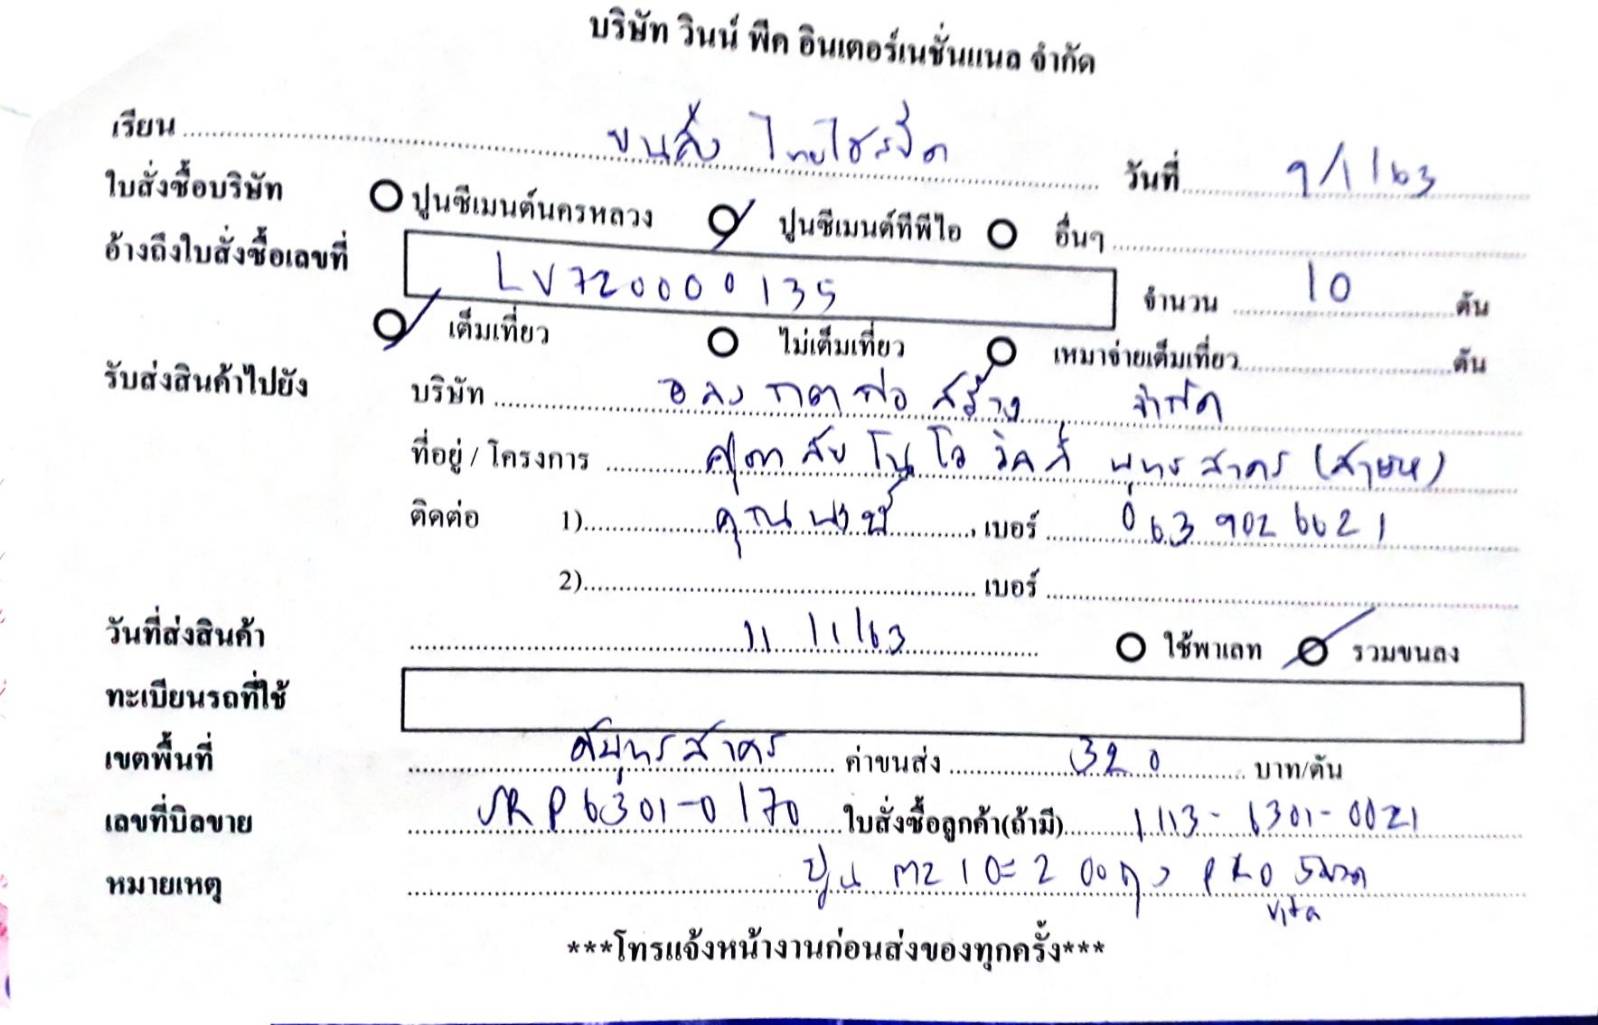 บริษัท วินน์ พีค อินเตอร์เนชั่นแนล จำกัด
เรียน ขนส่ง วันที่ 9/1/63
ใบสั่งซื้อบริษัท ปูนซีเมนต์นครหลวง ปูนซีเมนต์ทีพีไอ อื่นๆ
อ้างถึงใบสั่งซื้อเลขที่ LV720000135 จำนวน 10 ตัน
เต็มเที่ยว ไม่เต็มเที่ยว เหมาจ่ายเต็มเที่ยว ตัน
รับส่งสินค้าไปยัง บริษัท อลงกตก่อสร้าง จำกัด
ที่อยู่ / โครงการ พุทธสาคร
ติดต่อ 1) คุณ เบอร์ 063 902 6621
2) เบอร์
วันที่ส่งสินค้า 11/1/63 ใช้พาเลท รวมขนลง
ทะเบียนรถที่ใช้
เขตพื้นที่ สมุทรสาคร ค่าขนส่ง 320 บาท/ตัน
เลขที่บิลขาย SRP6301-0170 ใบสั่งซื้อลูกค้า(ถ้ามี) 1113-6301-0021
หมายเหตุ ปูน m210=200
***โทรแจ้งหน้างานก่อนส่งของทุกครั้ง***